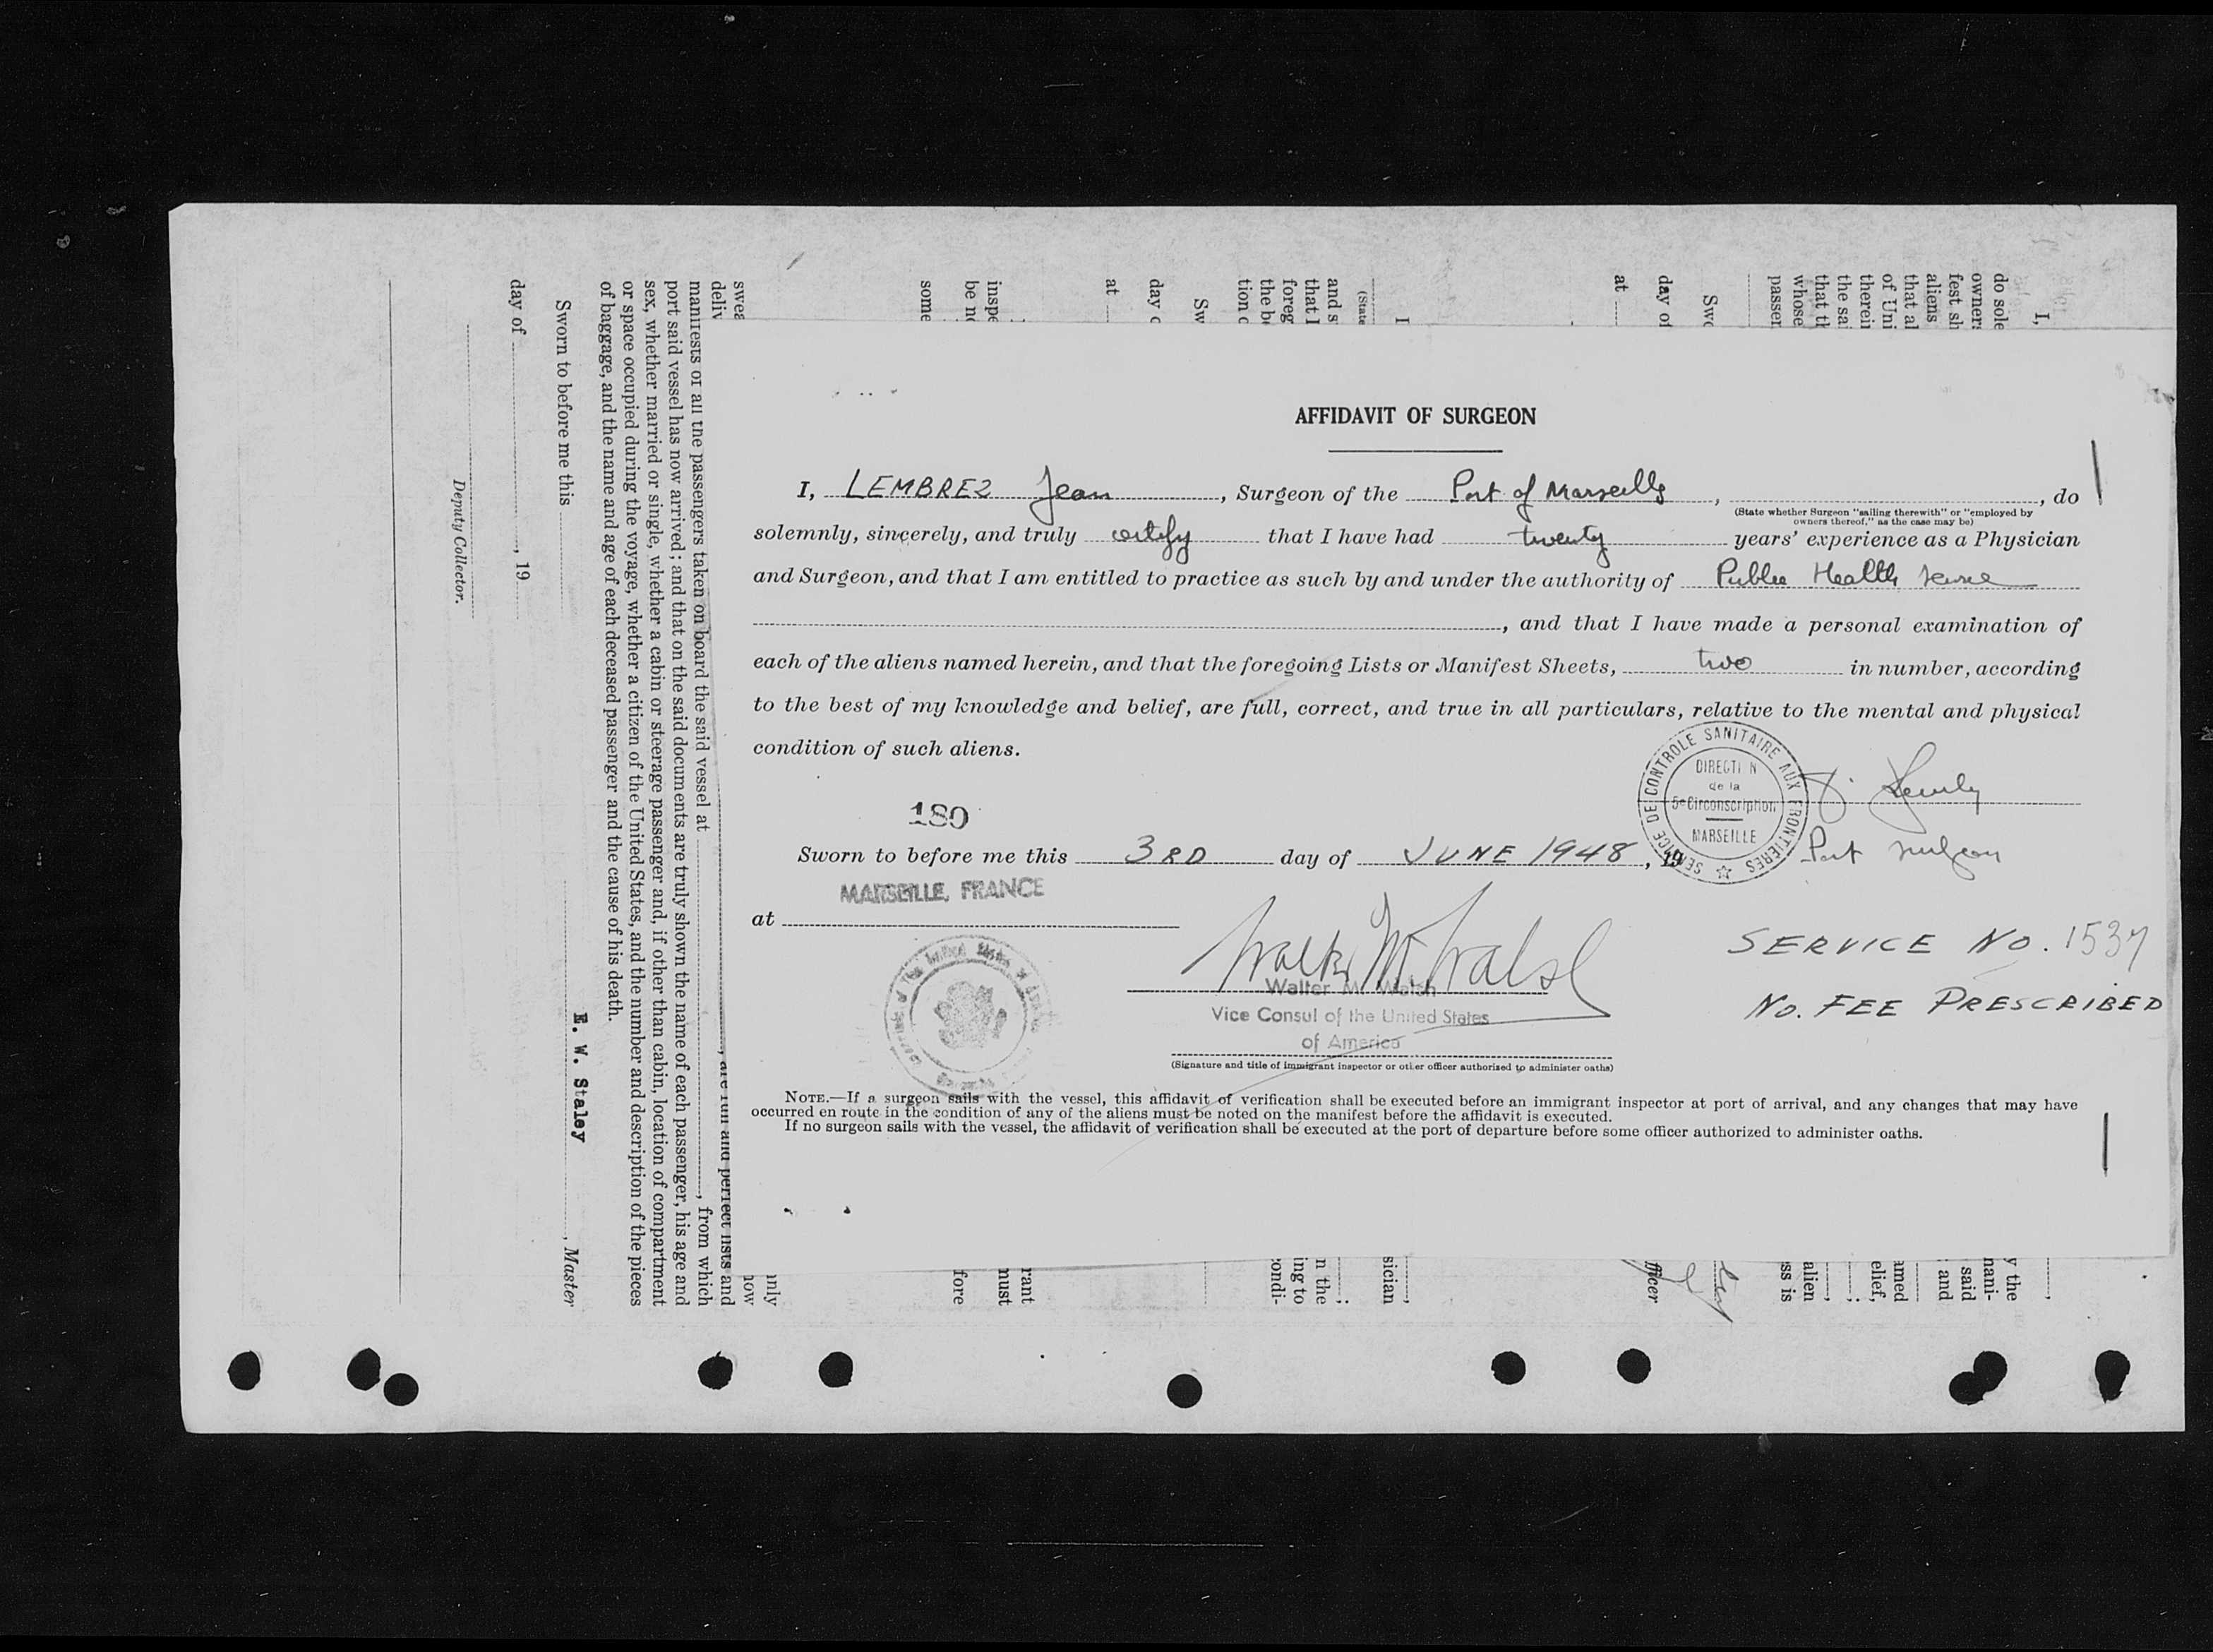 AFFIDAVIT OF SURGEON
I, LEMBREZ Jean, Surgeon of the Port of Marseille, , do
(State whether Surgeon "sailing therewith" or "employed by
owners thereof," as the case may be)
solemnly, sincerely, and truly certify that I have had twenty years' experience as a Physician
and Surgeon, and that I am entitled to practice as such by and under the authority of Public Health
, and that I have made a personal examination of
each of the aliens named herein, and that the foregoing Lists or Manifest Sheets, two in number, according
to the best of my knowledge and belief, are full, correct, and true in all particulars, relative to the mental and physical
condition of such aliens.
SERVICE DE CONTROLE SANITAIRE AUX FRONTIERES
DIRECTI N
de la
5e Circonscription
MARSEILLE
Port surgeon
180
Sworn to before me this 3RD day of JUNE 1948, 19
MARSEILLE, FRANCE
at
Walter M. Walsh
Walter M. Walsh
Vice Consul of the United States
of America
(Signature and title of immigrant inspector or other officer authorized to administer oaths)
SERVICE NO. 1537
NO. FEE PRESCRIBED
NOTE.—If a surgeon sails with the vessel, this affidavit of verification shall be executed before an immigrant inspector at port of arrival, and any changes that may have
occurred en route in the condition of any of the aliens must be noted on the manifest before the affidavit is executed.
If no surgeon sails with the vessel, the affidavit of verification shall be executed at the port of departure before some officer authorized to administer oaths.
I,
do sole
owners
fest sh
aliens
that al
of Uni
therein
the sa
that th
whose
passen
Swo
day of
at
I
(State
and s
that I
foreg
the b
tion o
Sw
day o
at
inspe
be no
some
swea
deliv
y the
mani-
said
and
amed
elief,
alien
ss is
fficer
sician
n the
ing to
condi-
rant
must
fore
only
now
, are full and perfect lists and
manifests of all the passengers taken on board the said vessel at , from which
port said vessel has now arrived; and that on the said documents are truly shown the name of each passenger, his age and
sex, whether married or single, whether a cabin or steerage passenger and, if other than cabin, location of compartment
or space occupied during the voyage, whether a citizen of the United States, and the number and description of the pieces
of baggage, and the name and age of each deceased passenger and the cause of his death.
E. W. Staley
, Master
Sworn to before me this
day of , 19
Deputy Collector.